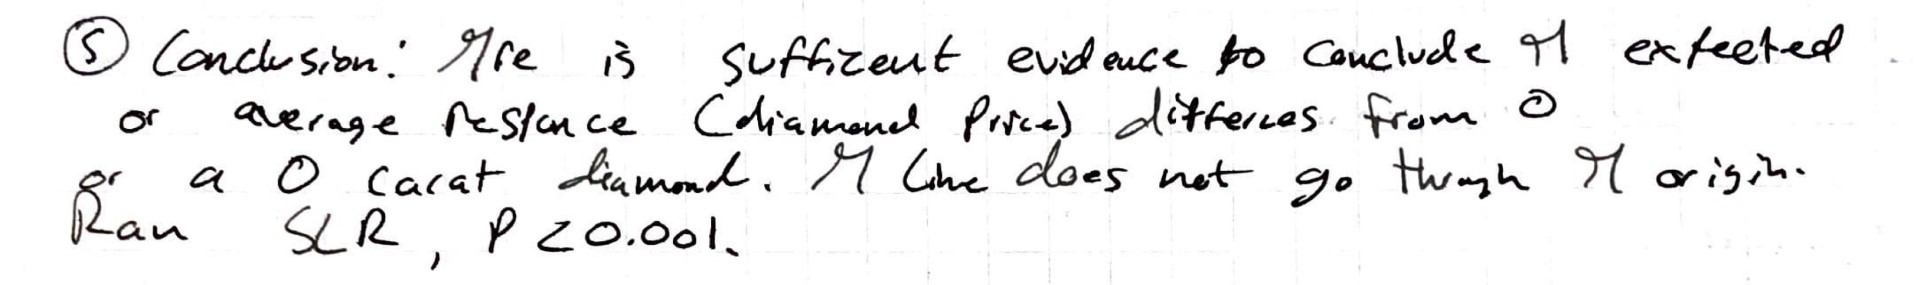 ⑤ Conclusion: There is sufficent evidence to conclude the expected
or average response (diamond price) differces from 0
or a 0 carat diamond. The line does not go through the origin.
Ran SLR, P < 0.001.